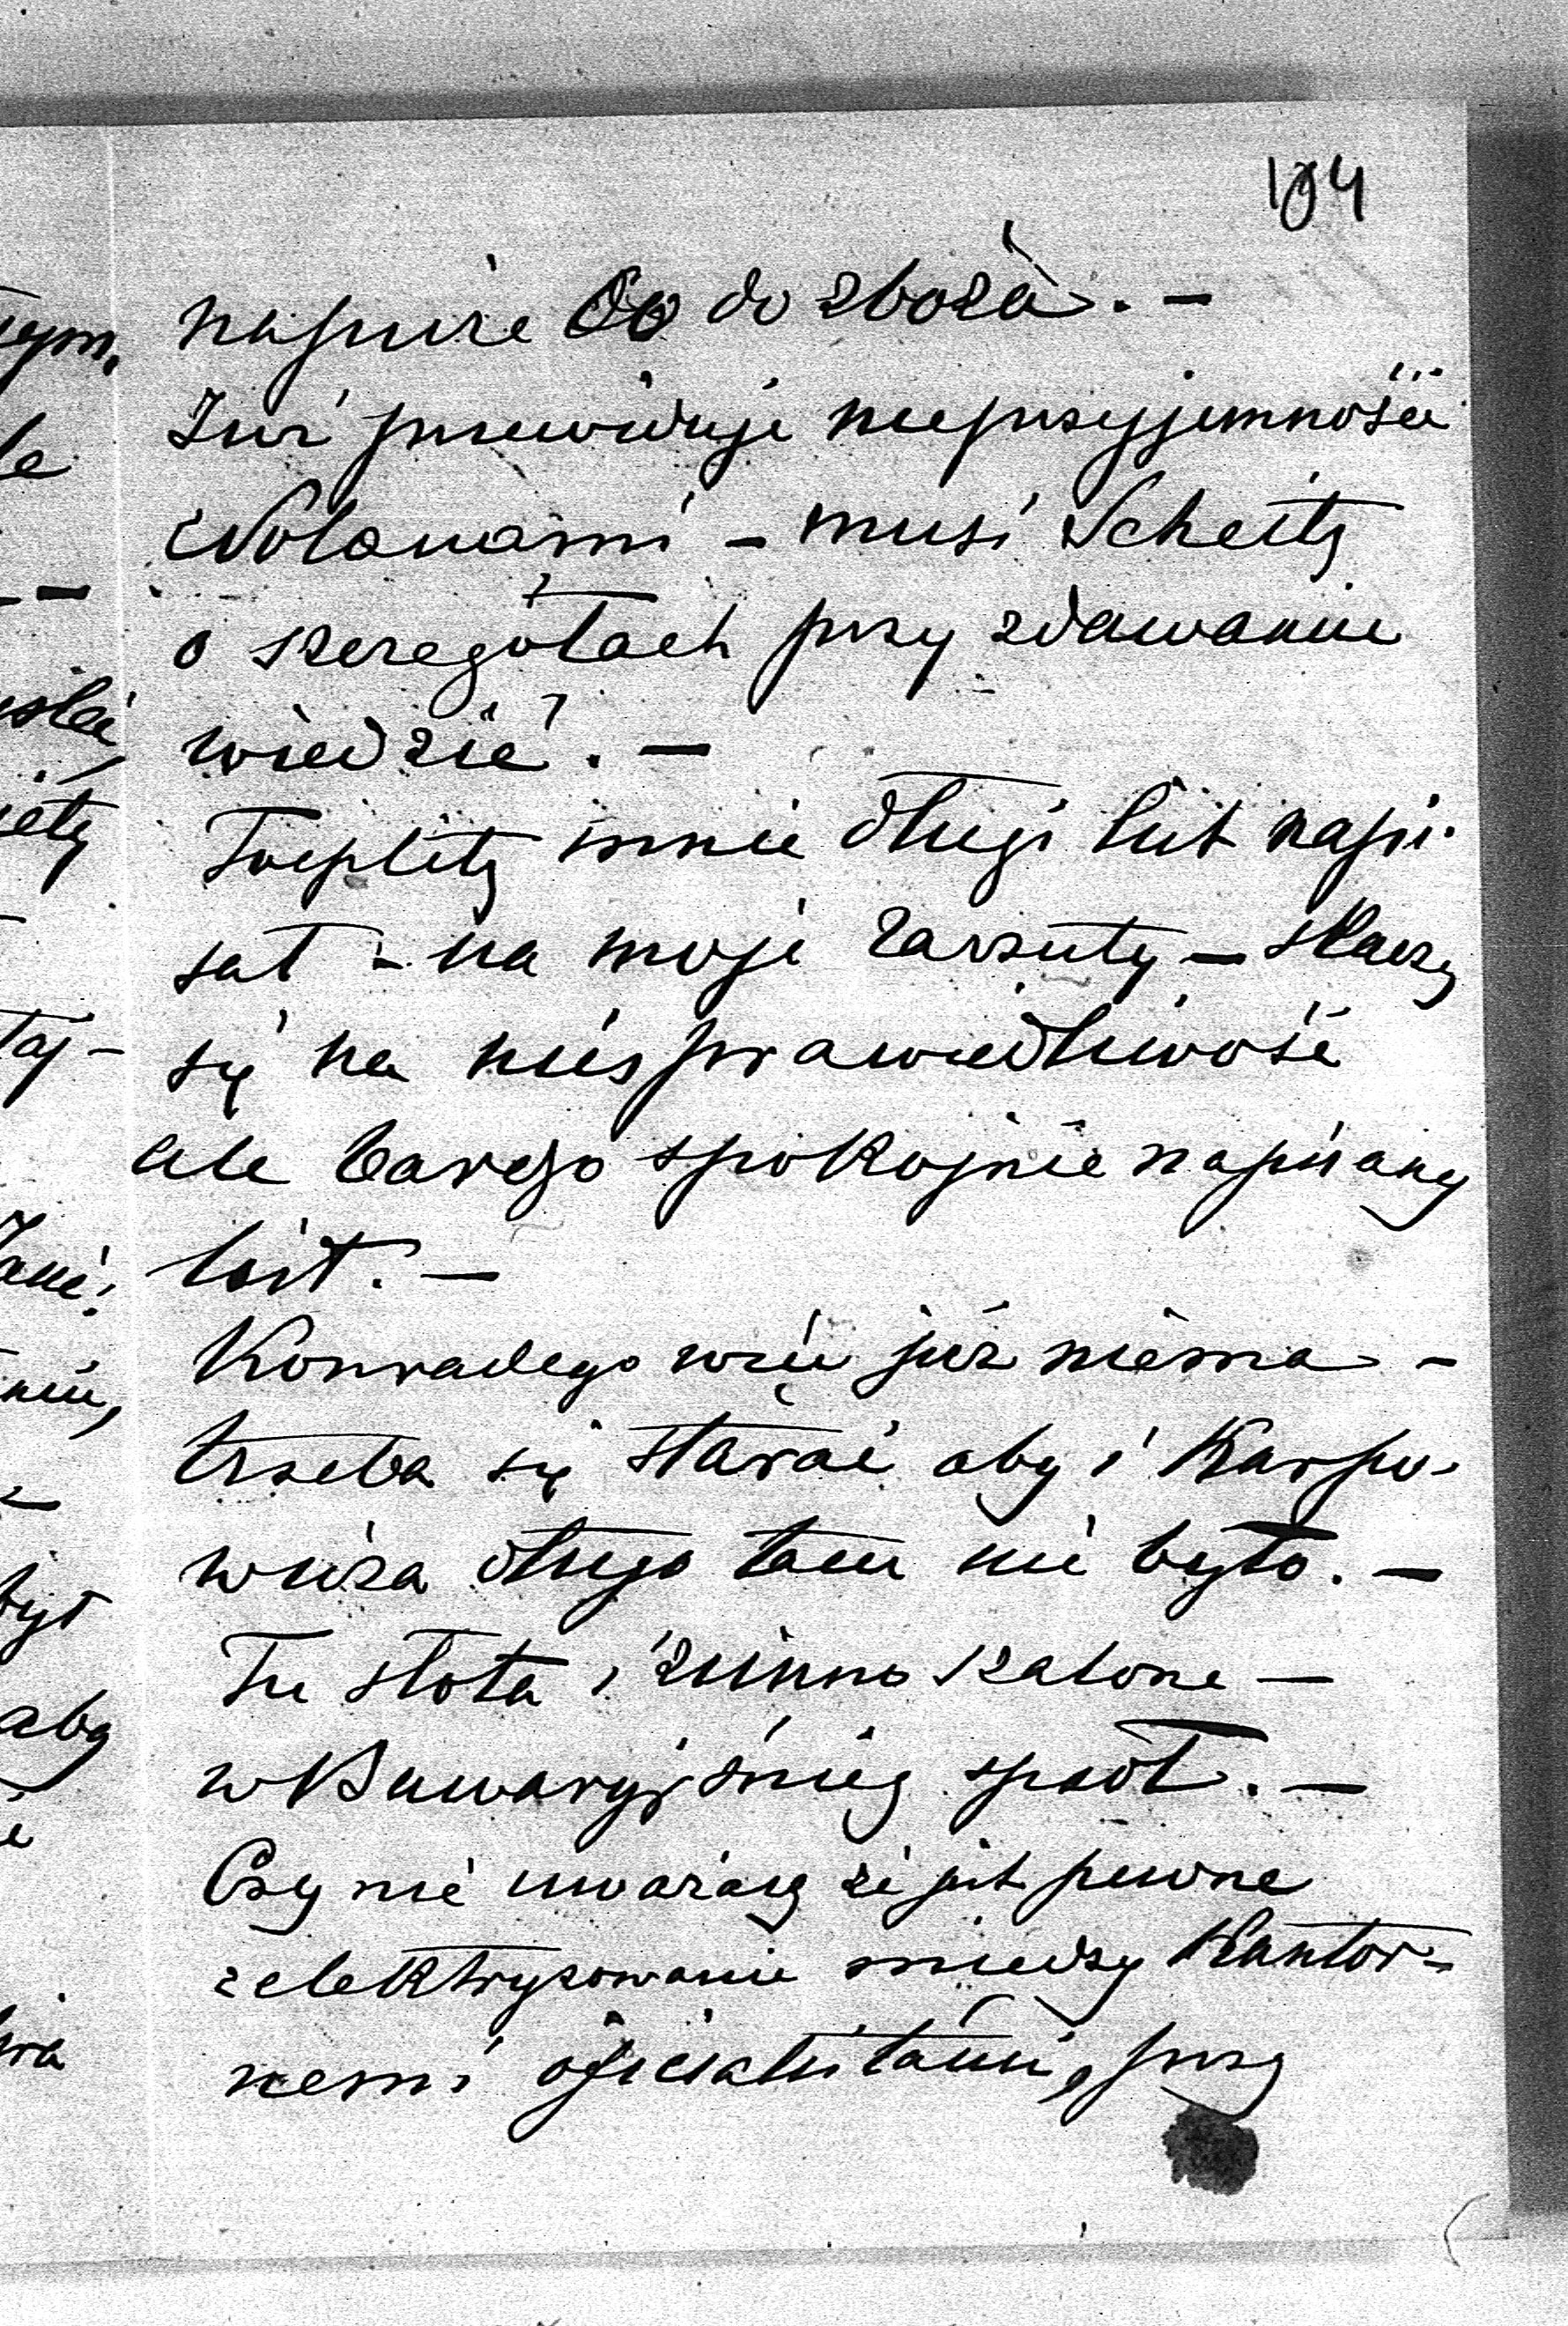 194
napisze Co do zboża. —
Już przewiduje nieprzyjemności
z Wolanami – musi Scheitz
o szczegółach przy zdawaniu
wiedzieć. —
Toeplitz mnie długi list napi-
sał – na moje zarzuty – skarzy
się na niesprawiedliwość
ale bardzo spokojnie napisany
list. —
Konradego więc już niema –
trzeba się starać aby i Karpo-
wicza długo tam nie było. —
Tu słota i zimno szalone —
w Bawaryi śnieg spadł. —
Czy nie uważasz że jest pewne
zelektryzowanie miedzy Kantor-
nemi oficialistami, przy